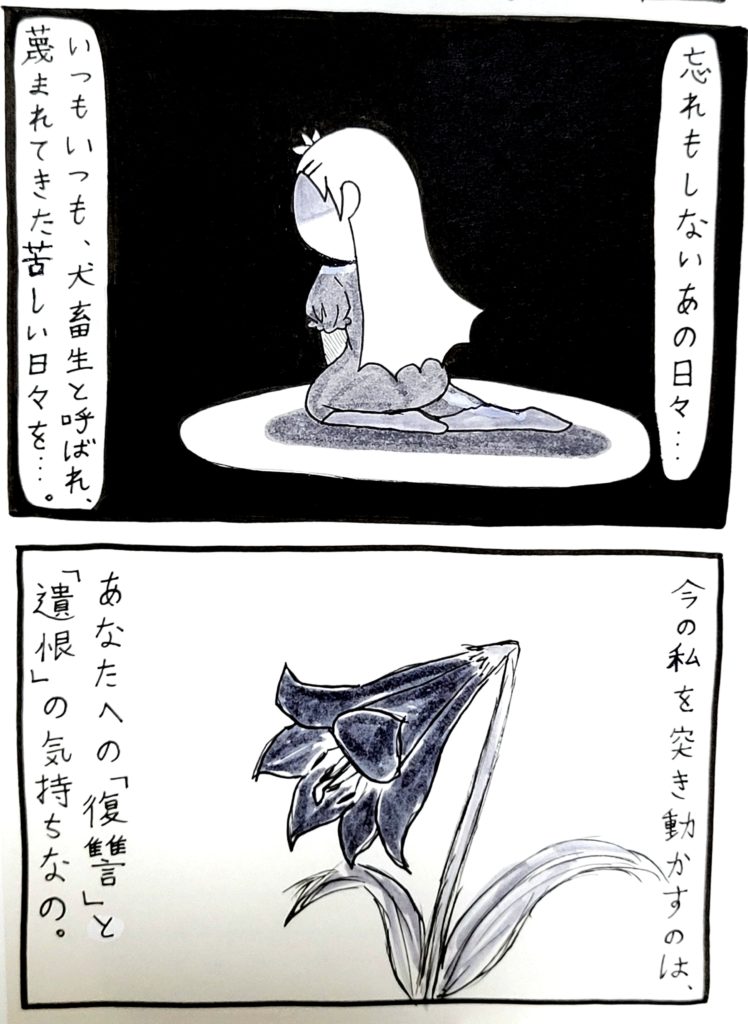 忘れもしないあの日々…
いつもいつも、犬畜生と呼ばれ、
蔑まれてきた苦しい日々を…。
今の私を突き動かすのは、
あなたへの「復讐」と
「遺恨」の気持ちなの。